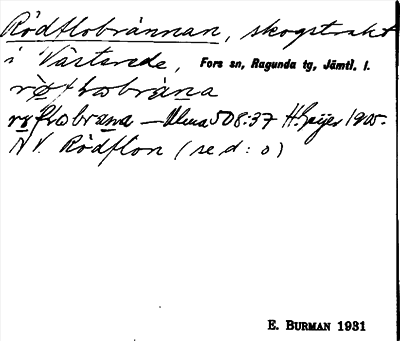 Rödflobrännan, skogstrakt
i Västerede, Fors sn, Ragunda tg, Jämtl. l.
Ulma 508:37 H. Geijer 1905.
N V. Rödflon (se d: o)
E. BURMAN 1931